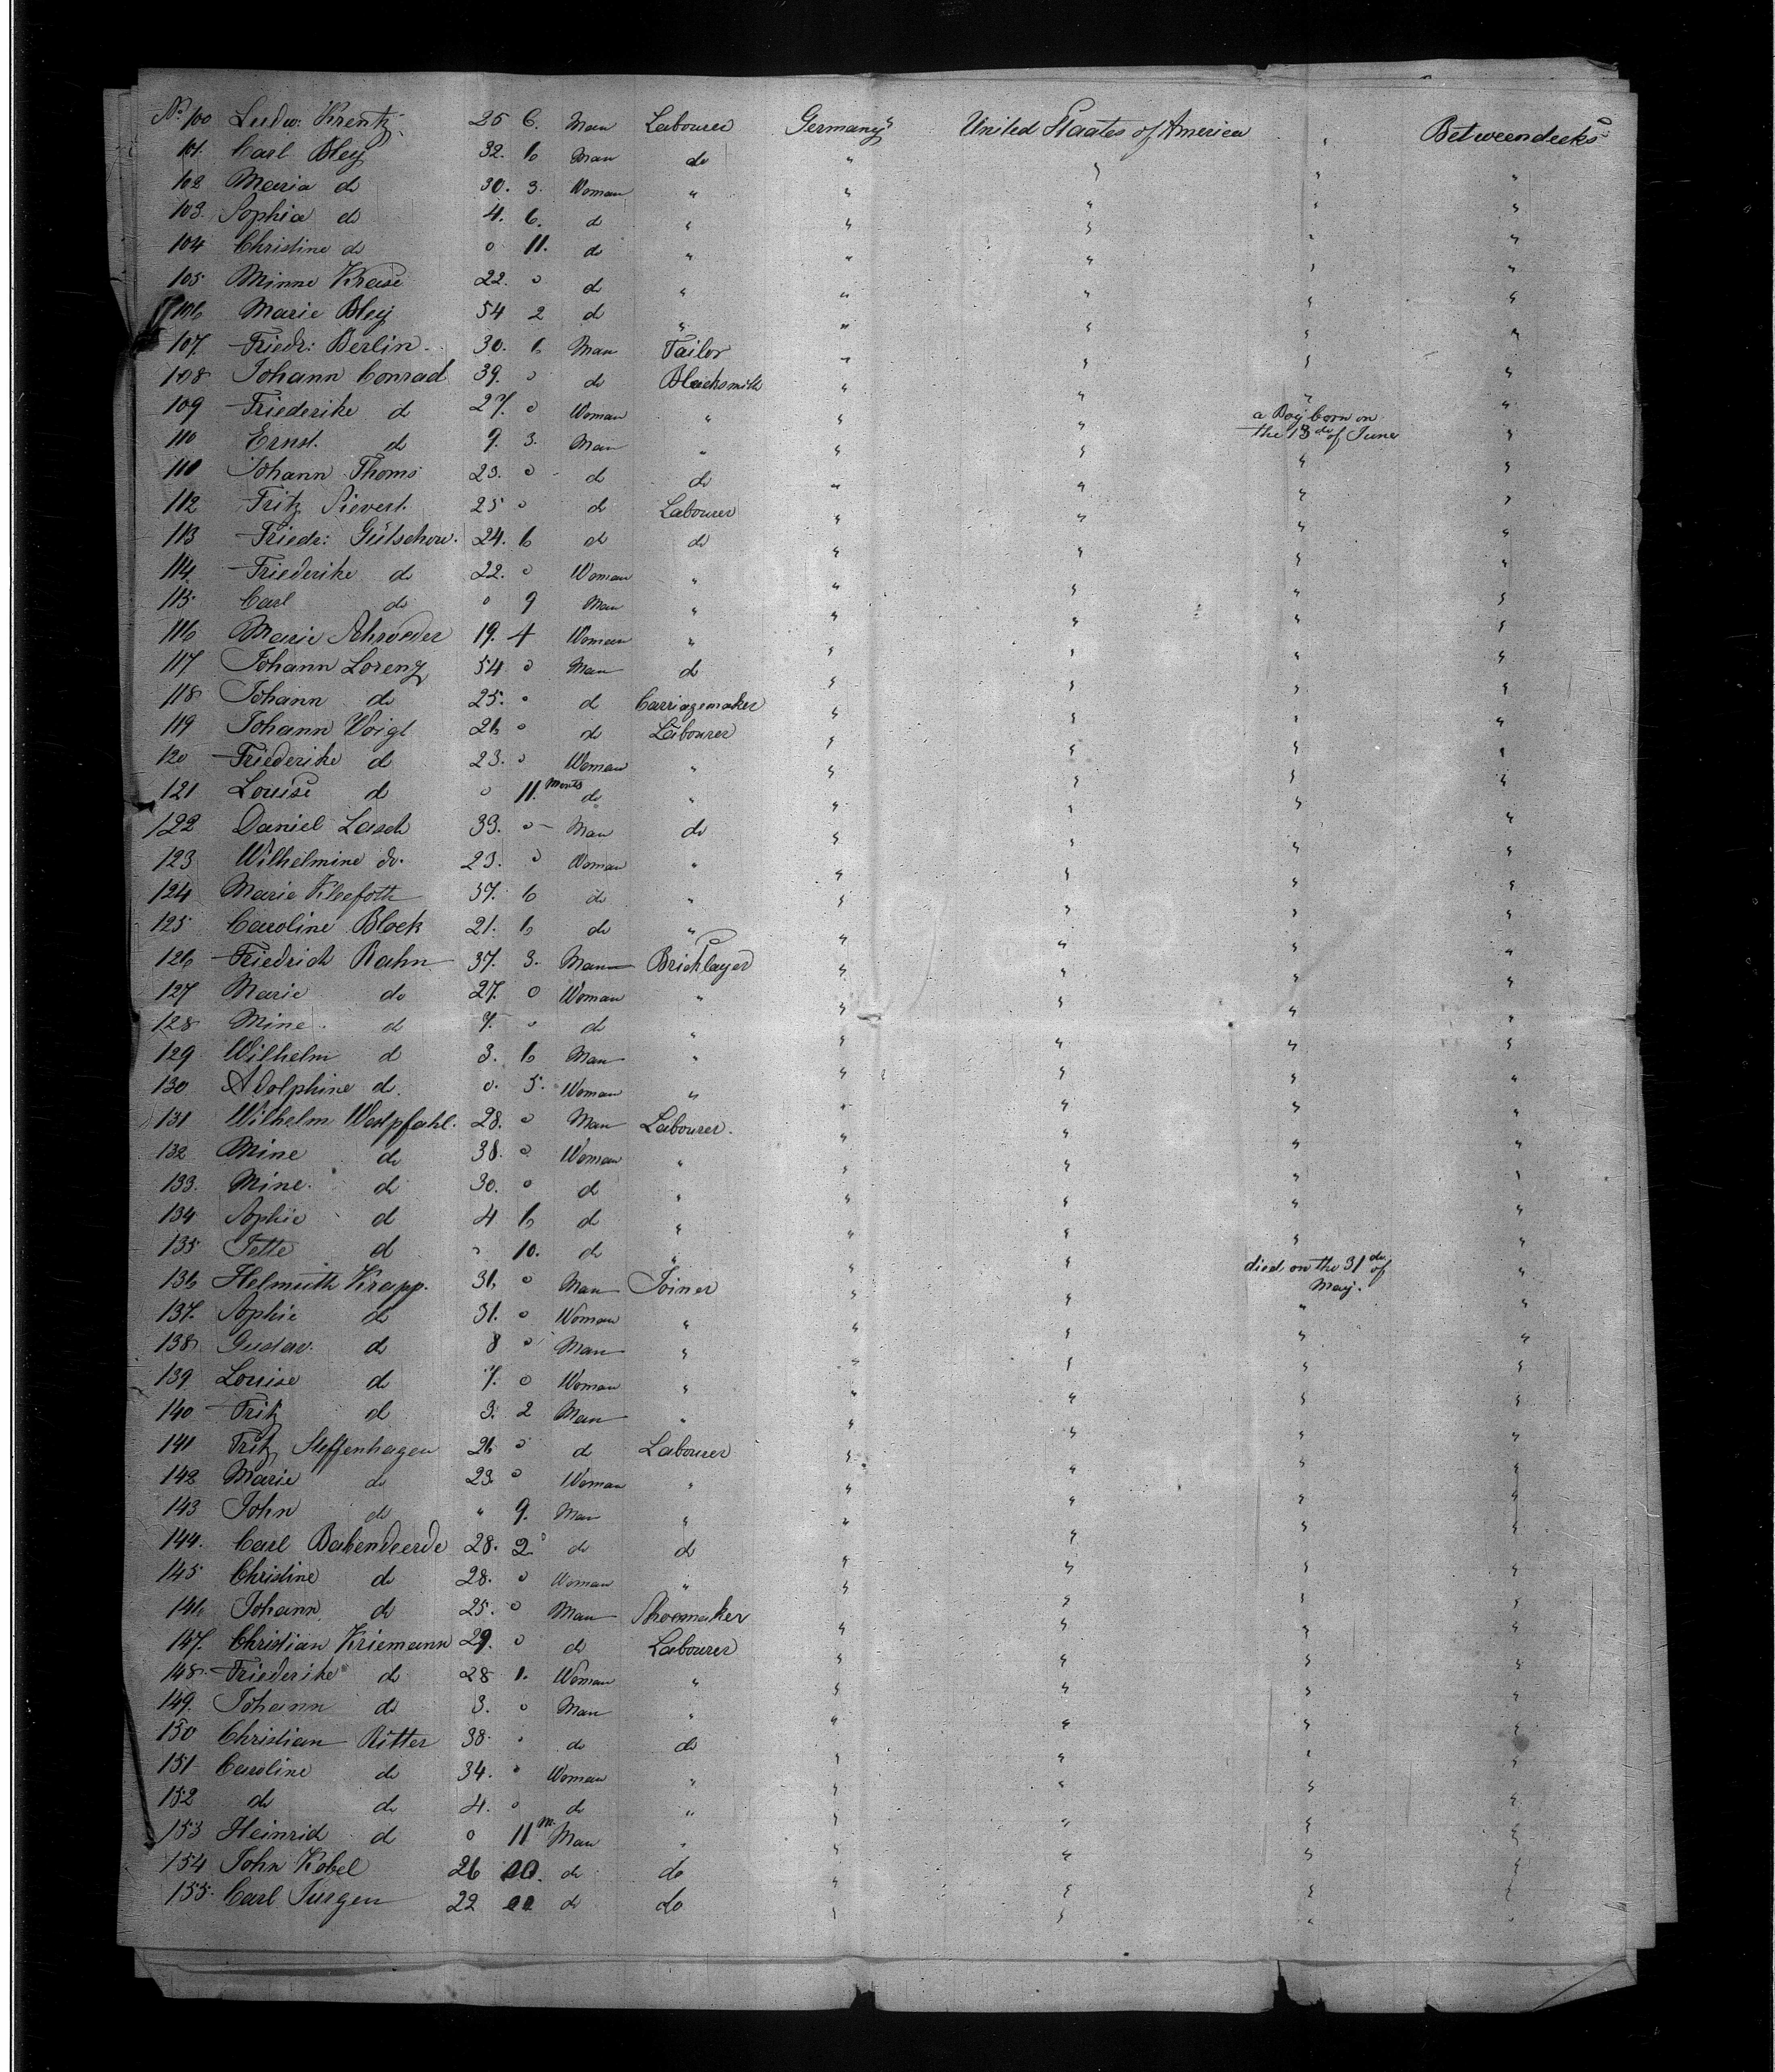 No. 100 Ludw: Krentz 25 6. Man Labourer Germany United Staates of America " Betweendecks
101. Carl Bley 32. 6 Man do " " " "
102 Maria do 30. 3. Woman " " " " "
103. Sophia do 4. 6. do " " " " "
104 Christine do 0 11. do " " " " "
105 Minne Krase 22. 0 do " " " " "
106 Marie Bley 54 2 do " " " " "
107. Friedr: Berlin 30. 6 Man Tailor " " " "
108 Johann Conrad 39. 0 do Blacksmith " " " "
109 Friederike do 27. 0 Woman " " " a Boy born on the 13de of June "
110 Ernst. do 9. 3. Man " " " " "
111 Johann Thoms 23. 0 do do " " " "
112 Fritz Sievert. 25 0 do Labourer " " " "
113 Friedr: Gütschow. 24. 6 do do " " " "
114. Friederike do 22. 0 Woman " " " " "
115. Carl do 0 9 Man " " " " "
116 Marie Schroeder 19. 4 Woman " " " " "
117 Johann Lorenz 54. 0 Man do " " " "
118 Johann do 25. 0 do Carriagemaker " " " "
119 Johann Voigt 26 0 do Labourer " " " "
120 Friederike do 23. 0 Woman " " " " "
121 Louise do 0 11. Monts do " " " " "
122 Daniel Lasch 33. 0 Man do " " " "
123 Wilhelmine do. 23. 0 Woman " " " " "
124 Marie Kleefoth 37. 6 do " " " " "
125 Caroline Block 21. 6 do " " " " "
126 Friedrich Rahn 37. 3. Man Bricklayer " " " "
127 Marie do 27. 0 Woman " " " " "
128 Mine. do 7. 0 do " " " " "
129 Wilhelm do 3. 6 Man " " " " "
130 Adolphine do. 0. 5. Woman " " " " "
131 Wilhelm Westpfahl. 28. 0 Man Labourer. " " " "
132 Mine do 38. 0 Woman " " " " "
133. Mine. do 30. 0 do " " " " "
134 Sophie do 4 6 do " " " " "
135 Jette do " 10. do " " " died on the 31de of May. "
136 Helmuth Krapp. 36 0 Man Joiner " " " "
137. Sophie do 31. 0 Woman " " " " "
138 Gustav. do 8 0 Man " " " " "
139 Louise do 7. 0 Woman " " " " "
140 Fritz do 3. 2 Man " " " " "
141 Fritz Steffenhagen 26 0 do Labourer " " " "
142 Marie do 23. 0 Woman " " " " "
143 John do " 9. Man " " " " "
144. Carl Babendeerde 28. 2 do do " " " "
145 Christine do 28. 0 Woman " " " " "
146 Johann do 25. 0 Man Shoemaker " " " "
147. Christian Kriemann 29. 0 do Labourer " " " "
148. Friederike do 28 1. Woman " " " " "
149. Johann do 3. 0 Man " " " " "
150 Christian Ritter 38. " do do " " " "
151 Caroline do 34. " Woman " " " " "
152 do do 4. 0 do " " " " "
153 Heinrich do 0 11 M. Man " " " " "
154 John Kobel 26 00. do do " " " "
155. Carl Jurgen 22 00 do do " " " "